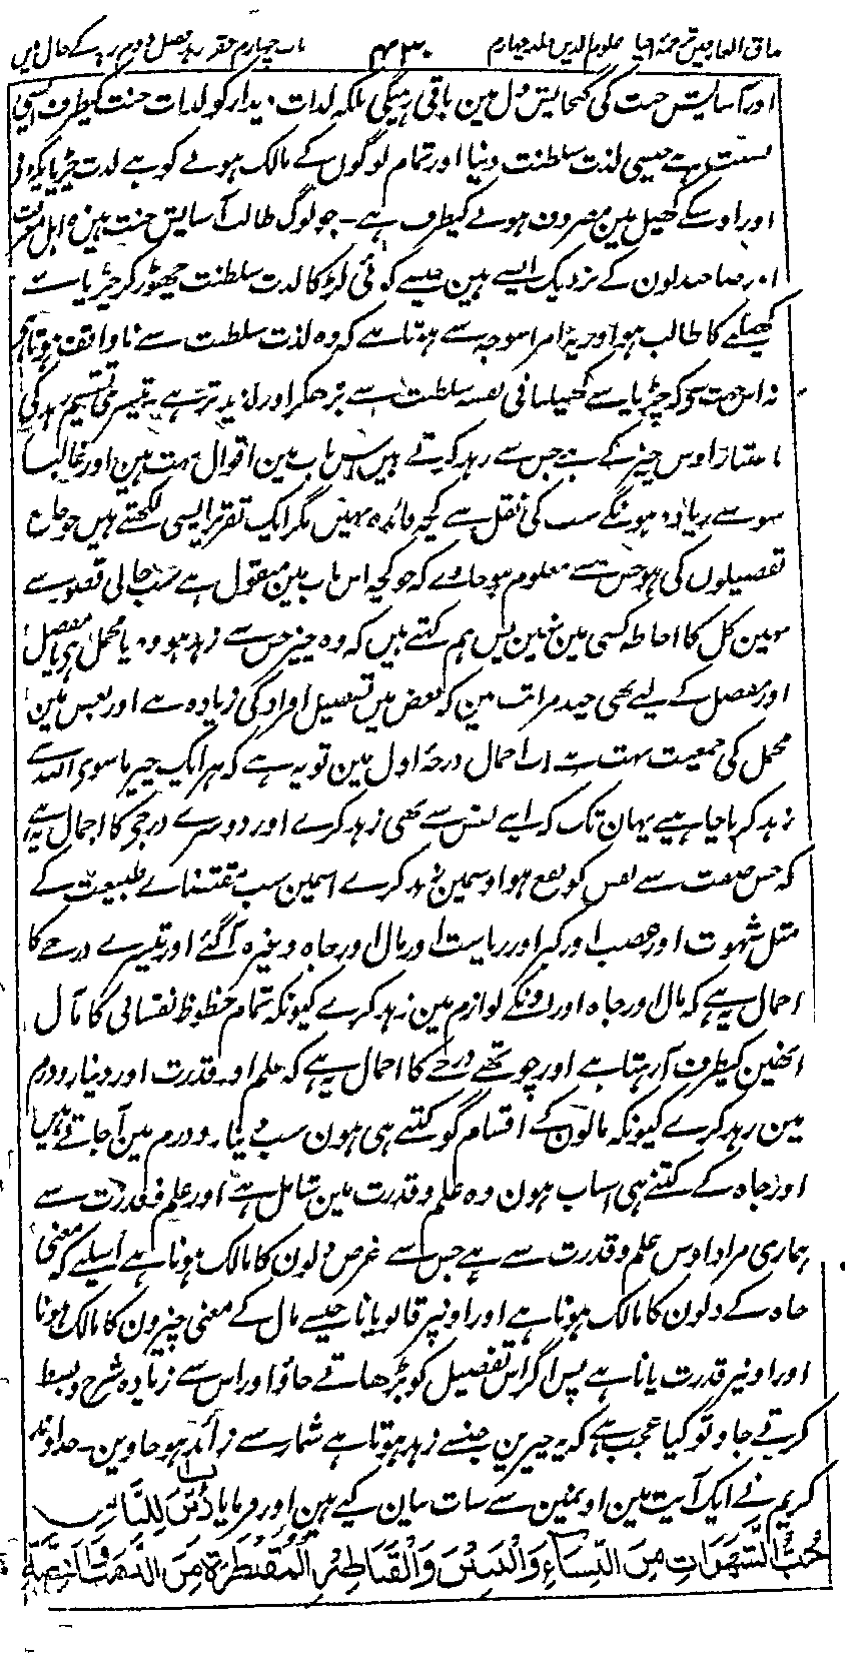 مذاق العارفین ترجمۂ احیاء علوم الدین جلد چہارم ۴۳۰ باب چہارم فقر زہد فصل دوم زہد کے حال میں
اور آسایش جنت کی گنجایش دل مین باقی رہیگی بلکہ لذات دیدار کو لذات جنت کیطرف ایسی
نسبت ہے جیسی لذت سلطنت دنیا اور تمام لوگوں کے مالک ہونے کو ہے لذت چڑیا پکڑنے
اور اوسکے کھیل مین مصروف ہونے کیطرف ہے۔ جو لوگ طالب آسایش جنت ہین وہ اہل معرفت
اور صاحبدلون کے نزدیک ایسے ہین جیسے کوئی لڑکا لذت سلطنت چھوڑ کر چڑیا سے
کھیلنے کا طالب ہو اور یہ امر اسوجہ سے ہوتا ہے کہ وہ لذت سلطنت سے ناواقف ہوتا ہے
نہ اس جہت سے کہ چڑیا سے کھیلنا فی نفسہ سلطنت سے بڑھکر اور لذیذ تر ہے۔ تیسری تقسیم زہد کی
باعتبار اوس چیز کے ہے جس سے زہد کرتے ہیں اس باب مین اقوال بہت ہین اور غالباً
سو سے زیادہ ہونگے سب کی نقل سے کچھ فائدہ نہین مگر ایک تقریر ایسی لکھتے ہیں جو جامع
تفصیلوں کی ہو جس سے معلوم ہو جاوے کہ جو کچھ اس باب مین منقول ہے سب خالی قصور سے
نہین کل کا احاطہ کسی مین نہین پس ہم کہتے ہیں کہ وہ چیز جس سے زہد ہو وہ یا مجمل ہی یا مفصل
اور مفصل کے لیے بھی چند مراتب ہین کہ بعض میں تفصیل افراد کی زیادہ ہے اور بعض مین
مجمل کی جمعیت بہت ہے اب اجمال درجۂ اول مین تو یہ ہے کہ ہر ایک چیز ماسوی اللہ سے
زہد کرنا چاہیے یہان تک کہ اپنے نفس سے بھی زہد کرے اور دوسرے درجے کا اجمال یہ ہے
کہ جس صفت سے نفس کو نفع ہو اوسمین زہد کرے اسمین سب مقتضائے طبیعت کے
مثل شہوت اور غضب اور کبر اور ریاست اور مال اور جاہ وغیرہ آگئے اور تیسرے درجے کا
اجمال یہ ہے کہ مال اور جاہ اور اونکے لوازم مین زہد کرے کیونکہ تمام حظوظ نفسانی کا مآل
انھین کیطرف آ رہتا ہے اور چوتھے درجے کا اجمال یہ ہے کہ علم اور قدرت اور دینار و درم
مین زہد کرے کیونکہ مالون کے اقسام گو کتنے ہی ہون سب دینار و درم مین آ جاتے ہیں
اور جاہ کے کتنے ہی اسباب ہون وہ علم و قدرت مین شامل ہے اور علم و قدرت سے
ہماری مراد اوس علم و قدرت سے ہے جس سے غرض دلون کا مالک ہونا ہے اسلیے کہ معنی
جاہ کے دلون کا مالک ہونا ہے اور اونپر قابو پانا جیسے مال کے معنی چیزون کا مالک ہونا
اور اونپر قدرت پانا ہے پس اگر اس تفصیل کو بڑھاتے جاؤ اور اس سے زیادہ شرح و بسط
کرتے جاؤ تو کیا عجب ہے کہ یہ چیزین جنسے زہد ہوتا ہے شمار سے زائد ہو جاوین۔ خداوند
کریم نے ایک آیت مین اونمین سے سات بیان کیے ہین اور فرمایا زُیِّنَ لِلنَّاسِ
حُبُّ الشَّهَوَاتِ مِنَ النِّسَاءِ وَالْبَنِیْنَ وَالْقَنَاطِیْرِ الْمُقَنْطَرَةِ مِنَ الذَّهَبِ وَالْفِضَّةِ